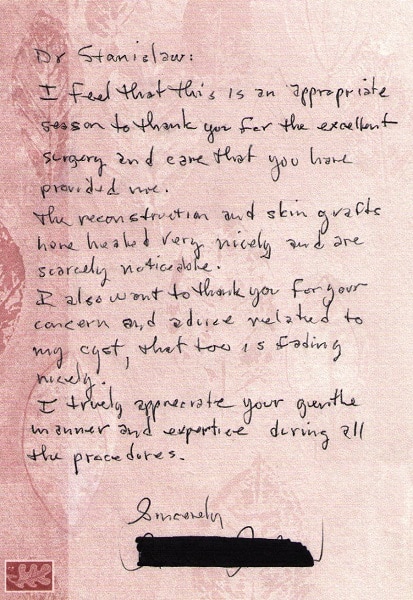 Dr Stanislaw:
I feel that this is an appropriate
season to thank you for the excellent
surgery and care that you have
provided me.
The reconstruction and skin grafts
have healed very nicely and are
scarcely noticeable.
I also want to thank you for your
concern and advice related to
my cyst, that too is fading
nicely.
I truely appreciate your genthe
manner and expertise during all
the procedures.
Sincerely